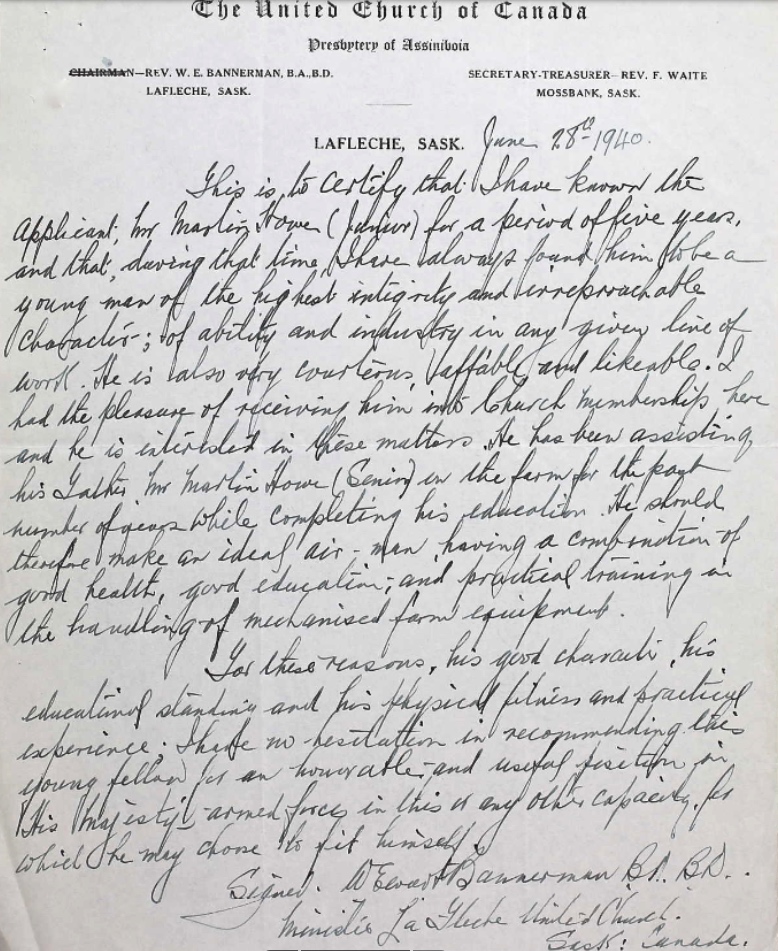 The United Church of Canada
Presbytery of Assiniboia
CHAIRMAN—REV. W. E. BANNERMAN, B.A.,B.D.
LAFLECHE, SASK.
SECRETARY-TREASURER—REV. F. WAITE
MOSSBANK, SASK.
LAFLECHE, SASK. June 28th 1940.
This is, to certify that I have known the
Applicant, Mr Martin Howe (Junior) for a period of five years,
and that, during that time, I have always found him to be a
young man of the highest integrity and irreproachable
character; of ability and industry in any given line of
work. He is also very courteous, affable, and likeable. I
had the pleasure of receiving him into Church Membership here
and he is interested in these matters. He has been assisting
his Father, Mr Martin Howe (Senior) on the farm for the past
number of years while completing his education. He should
therefore make an ideal air-man, having a combination of
good health, good education; and practical training in
the handling of mechanised farm equipment.
For these reasons, his good character, his
educational standing and his physical fitness and practical
experience. I have no hesitation in recommending this
young fellow for an honorable and useful position in
His Majesty's armed forces in this or any other capacity, for
which he may choose to fit himself.
Signed. W Ewart Bannerman B.A. B.D.
Minister La Fleche United Church.
Sask: Canada.